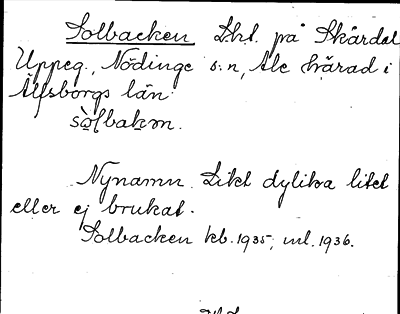 Solbacken Lht. på Skårdal
Uppeg., Nödinge s:n, Ale härad i
Älvsborgs län.
sòlbakən.
Nynamn. Likt dylika litet
eller ej brukat.
Solbacken kb. 1935; ml. 1936.